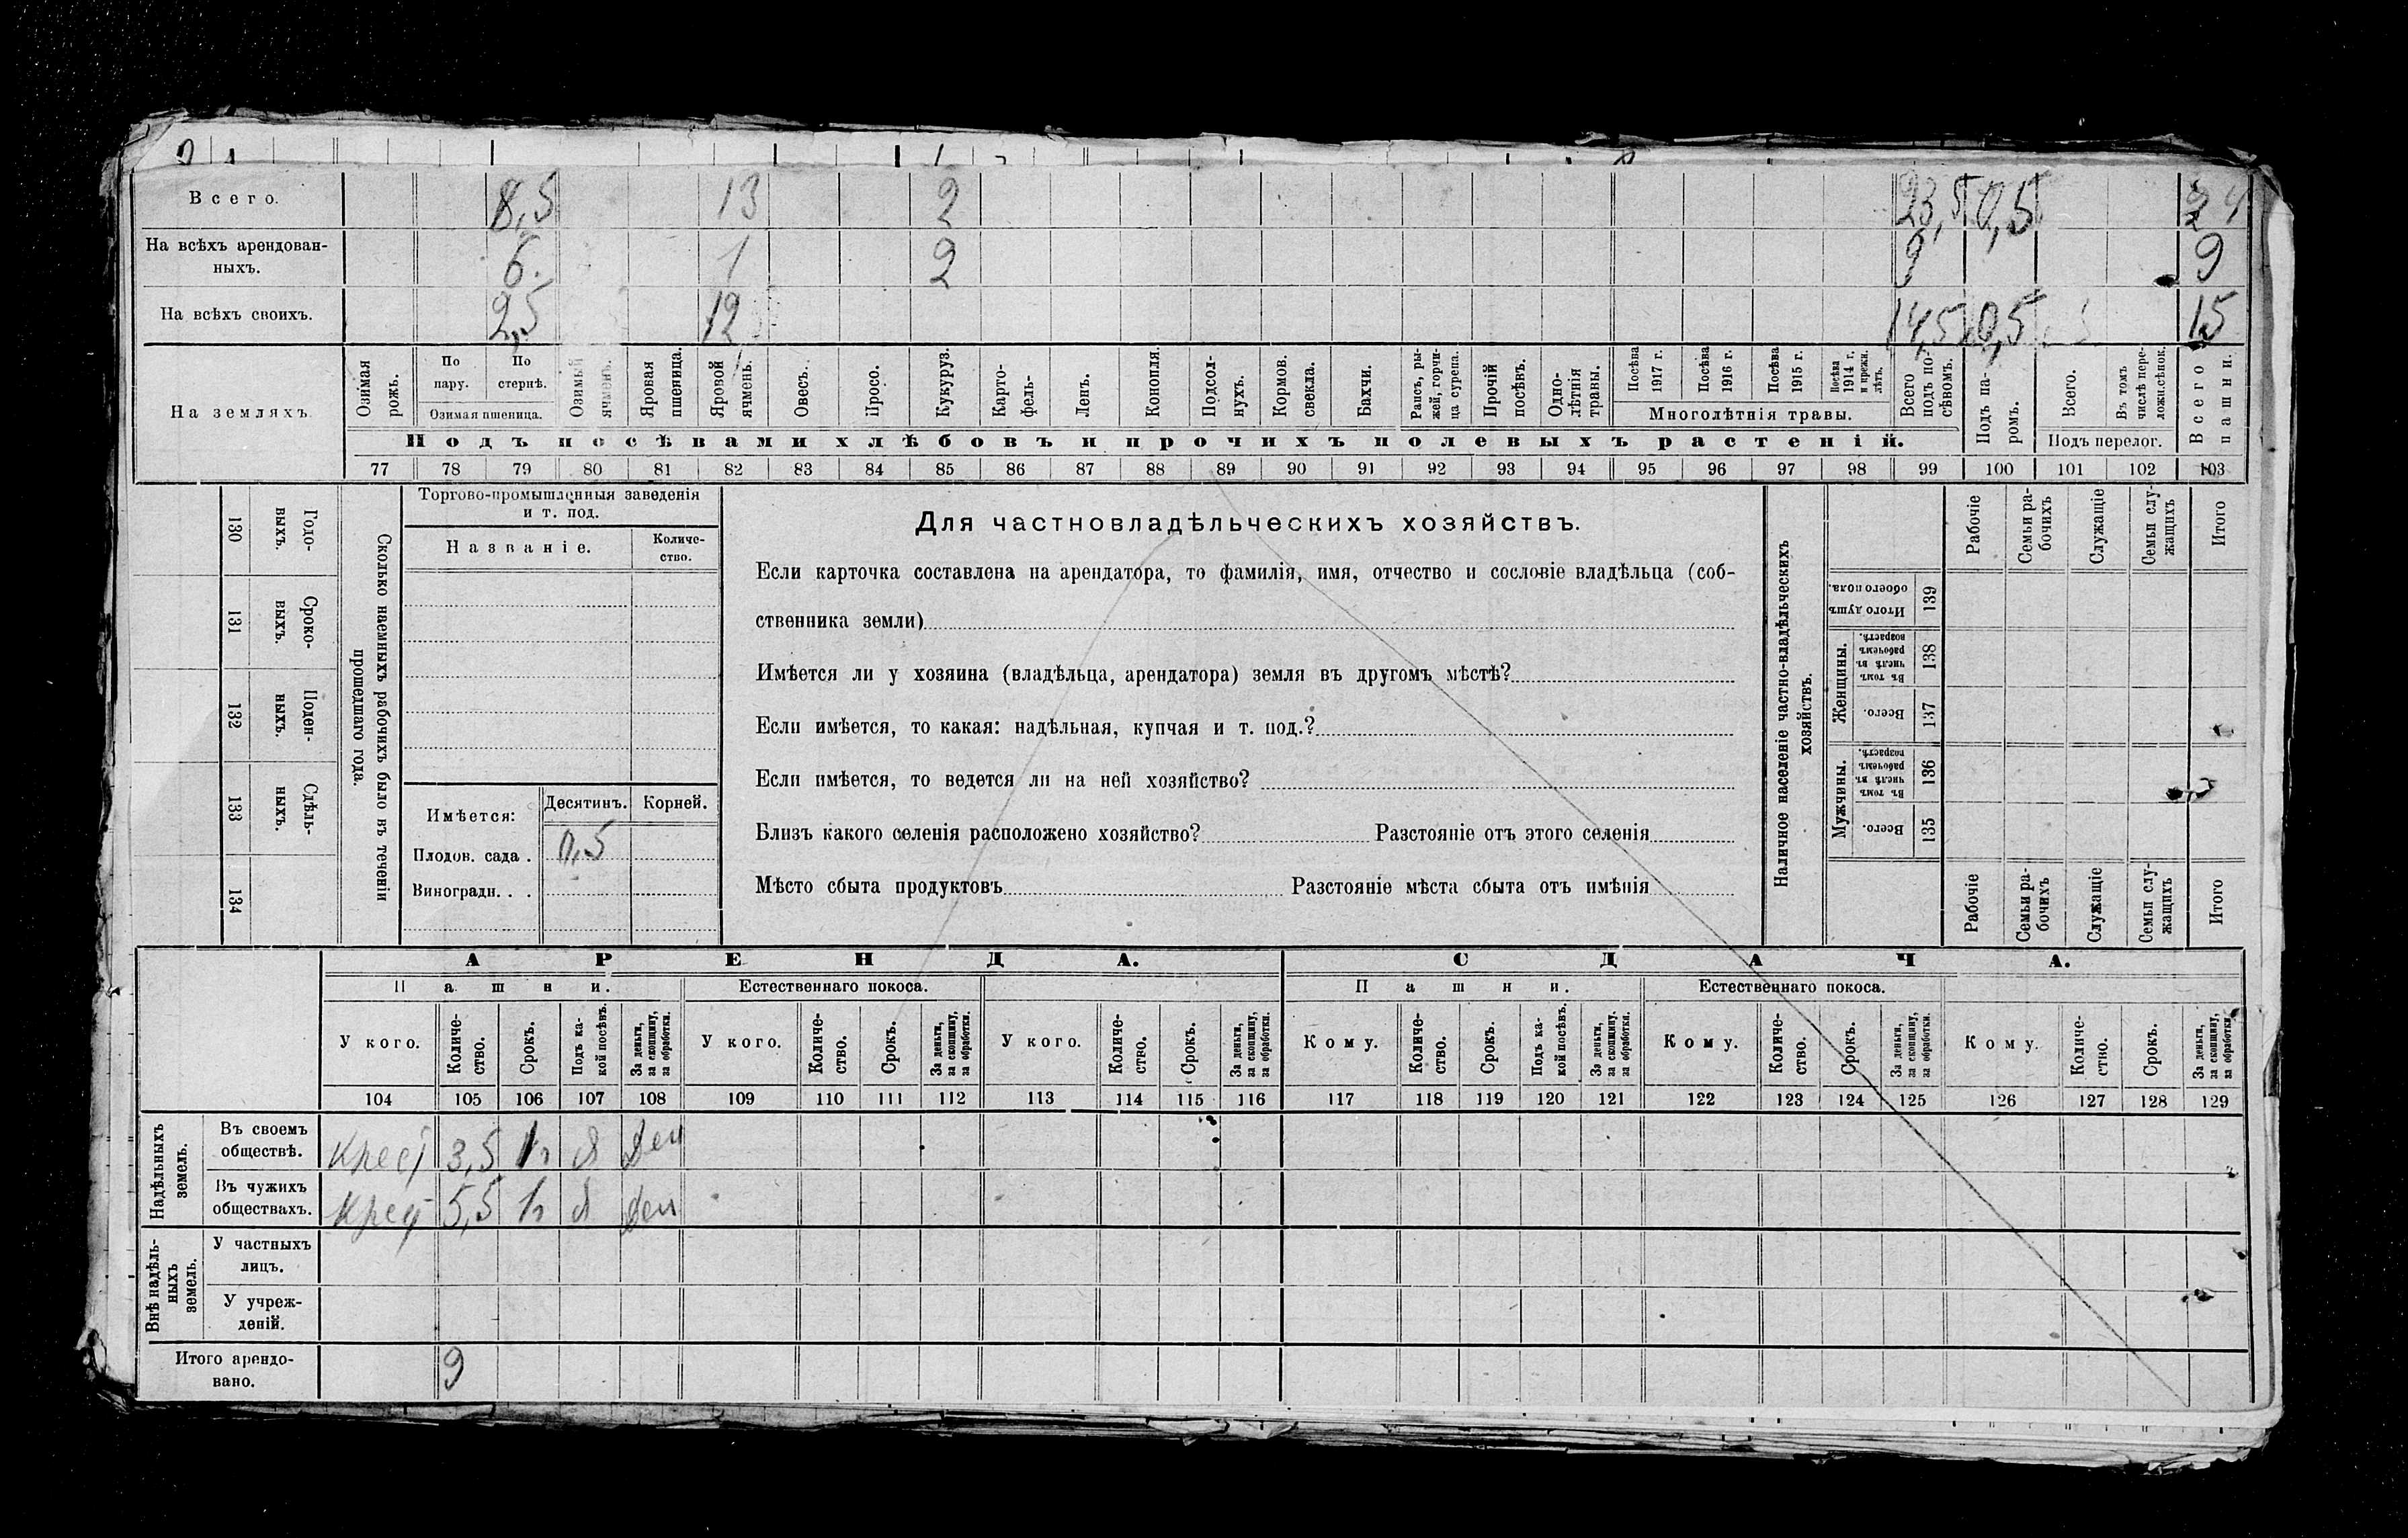 Всего. 8,5 13 2 23,5 0,5 24
На всѣхъ арендован-
ныхъ. 6. 1 2 9 9
На всѣхъ своихъ. 2,5 12 14,5 0,5 15
На земляхъ.
Озимая рожь.
По пару.
По стернѣ.
Озимая пшеница.
Озимый ячмень.
Яровая пшеница.
Яровой ячмень.
Овесъ.
Просо.
Кукуруз.
Карто-
фель-
Ленъ.
Конопля.
Подсол-
нухъ.
Кормов.
свекла.
Бахчи.
Рапсъ, ры-
жей, горчи-
ца сурепа.
Прочій
посѣвъ.
Одно-
лѣтнія
травы.
Посѣва
1917 г.
Посѣва
1916 г.
Посѣва
1915 г.
Посѣва
1914 г.
и прежн.
лѣтъ.
Многолѣтнія травы.
Всего
подъ по-
сѣвомъ.
Подъ па-
ромъ.
Всего.
Въ томъ
числѣ пере-
ложн.сѣнок.
Подъ перелог.
Всего
пашни.
Подъ посѣвами хлѣбовъ и прочихъ полевыхъ растеній.
77 78 79 80 81 82 83 84 85 86 87 88 89 90 91 92 93 94 95 96 97 98 99 100 101 102 103
130 Годо-
выхъ.
131 Сроко-
выхъ.
132 Поден-
ныхъ.
133 Сдѣль-
ныхъ.
134
Сколько наемныхъ рабочихъ было въ теченіи
прошедшаго года.
Торгово-промышленныя заведенія
и т. под.
Названіе.
Количе-
ство.
Имѣется: Десятинъ. Корней.
Плодов. сада . 0,5
Виноградн. . .
Для частновладѣльческихъ хозяйствъ.
Если карточка составлена на арендатора, то фамилія, имя, отчество и сословіе владѣльца (соб-
ственника земли)
Имѣется ли у хозяина (владѣльца, арендатора) земля въ другомъ мѣстѣ?
Если имѣется, то какая: надѣльная, купчая и т. под.?
Если имѣется, то ведется ли на ней хозяйство?
Близъ какого селенія расположено хозяйство? Разстояніе отъ этого селенія
Мѣсто сбыта продуктовъ Разстояніе мѣста сбыта отъ имѣнія
Наличное населеніе частно-владѣльческихъ
хозяйствъ.
Рабочіе
Семьи ра-
бочихъ
Служащіе
Семьи слу-
жащихъ
Итого
Итого душъ
обоего пола. 139
Женщины.
Въ томъ
числѣ въ
рабочемъ
возрастѣ. 138
Всего. 137
Мужчины.
Въ томъ
числѣ въ
рабочемъ
возрастѣ. 136
Всего. 135
Рабочіе
Семьи ра-
бочихъ
Служащіе
Семьи слу-
жащихъ
Итого
АРЕНДА. СДАЧА.
Пашни. Естественнаго покоса. Пашни. Естественнаго покоса.
У кого.
Количе-
ство.
Срокъ.
Подъ ка-
кой посѣвъ.
За деньги,
за скопщину,
за обработки.
У кого.
Количе-
ство.
Срокъ.
За деньги,
за скопщину,
за обработки.
У кого.
Количе-
ство.
Срокъ.
За деньги,
за скопщину,
за обработки.
Кому.
Количе-
ство.
Срокъ.
Подъ ка-
кой посѣвъ.
За деньги,
за скопщину.
за обработки.
Кому.
Количе-
ство.
Срокъ.
За деньги,
за скопщину,
за обработки.
Кому.
Количе-
ство.
Срокъ.
За деньги,
за скопщину,
за обработки.
104 105 106 107 108 109 110 111 112 113 114 115 116 117 118 119 120 121 122 123 124 125 126 127 128 129
Надѣльныхъ
земель.
Въ своемъ
обществѣ. Крест 3,5 Ден
Въ чужихъ
обществахъ. Крест 5,5 Ден
Внѣ надѣль-
ныхъ
земель.
У частныхъ
лицъ.
У учреж-
деній.
Итого арендо-
вано. 9